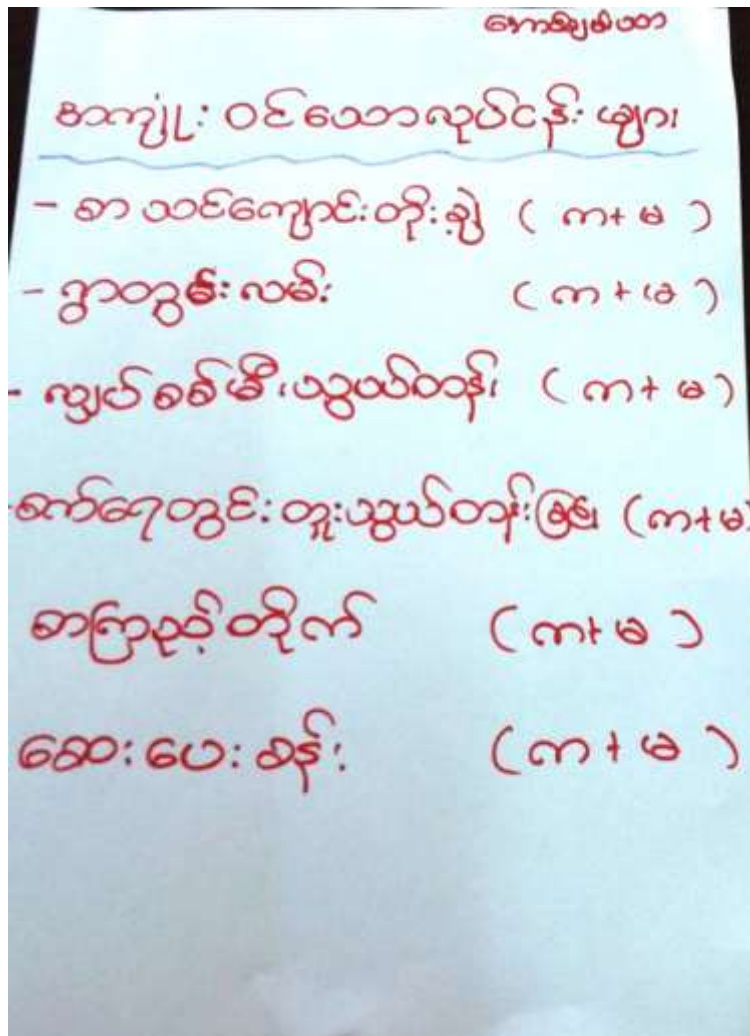 အောင်ချမ်းသာ
စာကျုံး ဝင်သောလုပ်ငန်း များ
- စာ သင်ကျောင်းတိုးချဲ့ ( ကာ + မ )
- ရွာတွင်းလမ်း ( ကာ + မ )
- လျှပ်စစ်မီးသွယ်တန်း ( ကာ + မ )
- စက်ရေတွင်းတူးသွယ်တန်းခြင်း ( ကာ + မ )
စာကြည့်တိုက် ( ကာ + မ )
ဆေးပေးခန်း ( ကာ + မ )